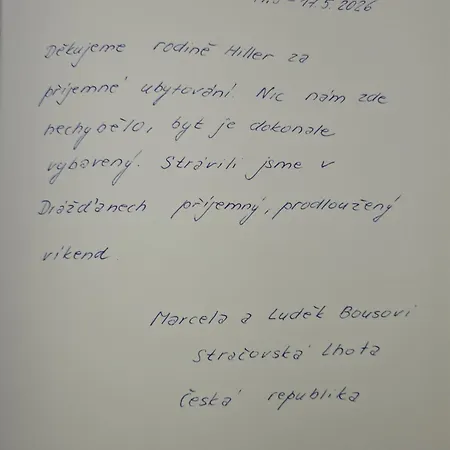 - 17.5.2026
Děkujeme rodině Hiller za
příjemné ubytování. Nic nám zde
nechybělo, byt je dokonale
vybavený. Strávili jsme v
Drážďanech příjemný, prodloužený
víkend.
Marcela a Luděk Bousovi
Stračovská Lhota
Česká republika